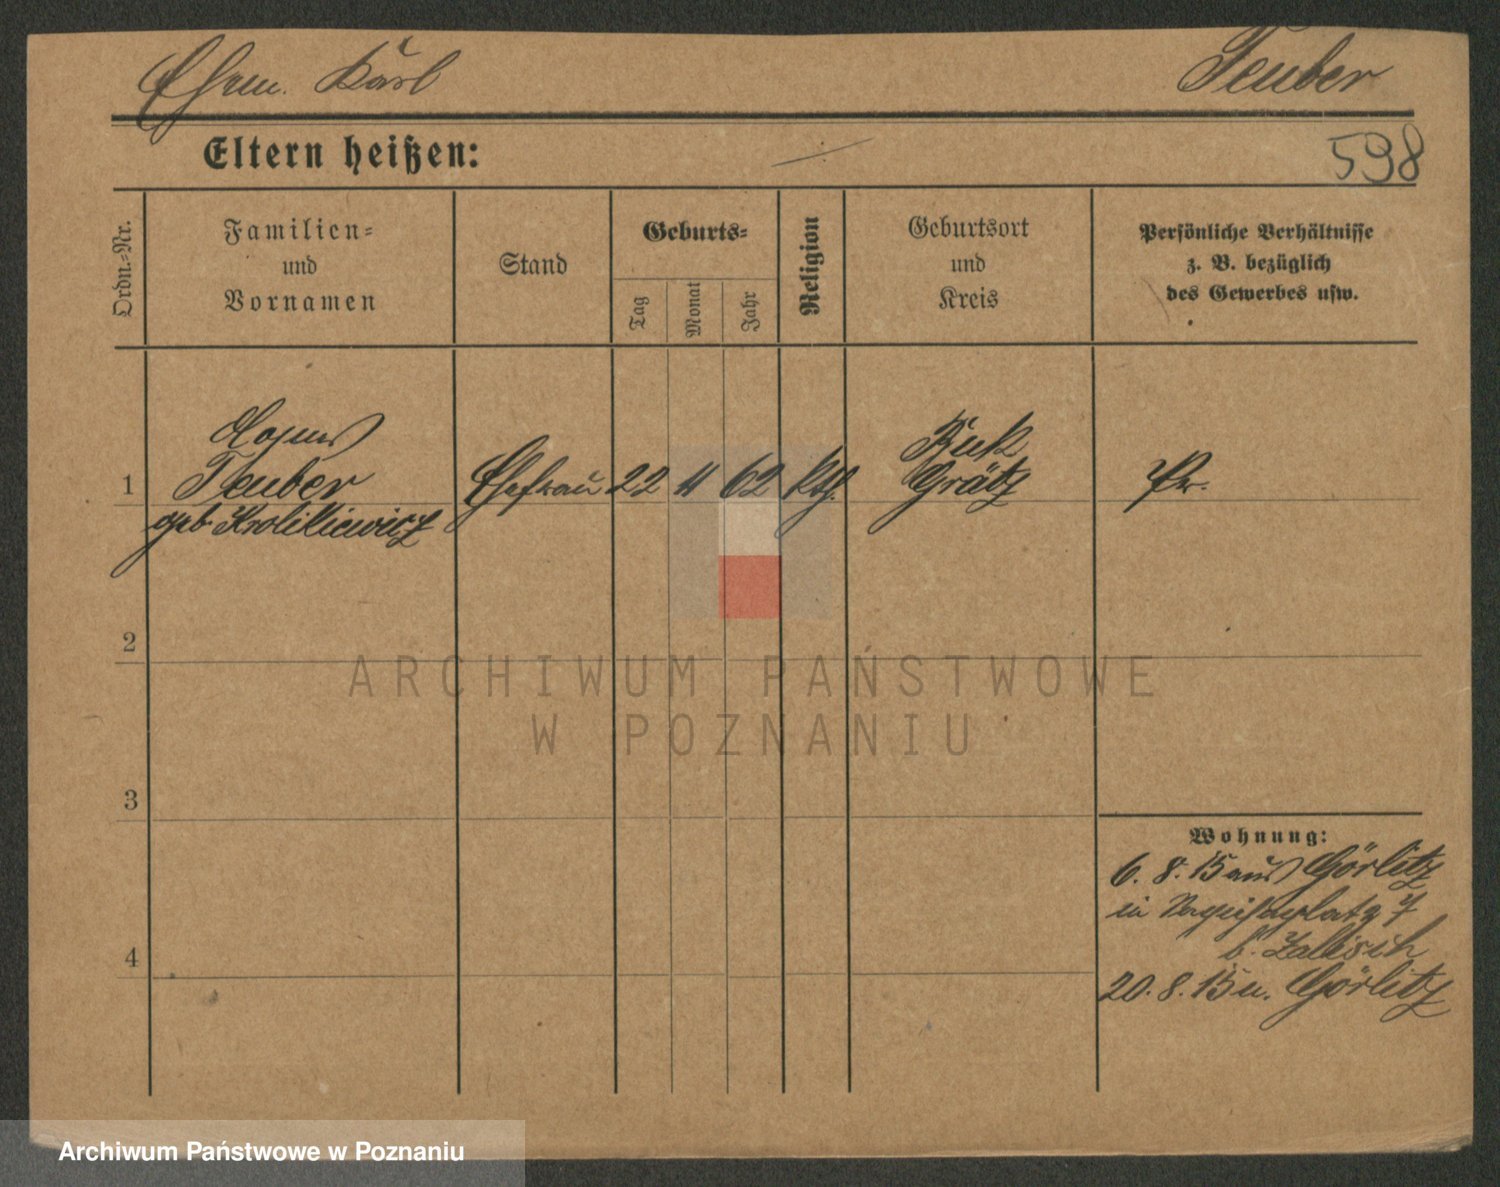 Ehem. Karl Teuber
Eltern heißen:
598
Ordn.-Nr.
Familien-
und
Vornamen
Stand
Geburts-
Tag
Monat
Jahr
Religion
Geburtsort
und
Kreis
Persönliche Verhältnisse
z. B. bezüglich
des Gewerbes usw.
1
Teuber
geb Krolikiewicz
Ehefrau
22
11
62
kth.
Buk
Grätz
Pr.
2
3
4
Wohnung:
6. 8. 15 aus Görlitz
in 7
b. Zallisch
20. 8. 15 n. Görlitz
ARCHIWUM PAŃSTWOWE
W POZNANIU
Archiwum Państwowe w Poznaniu